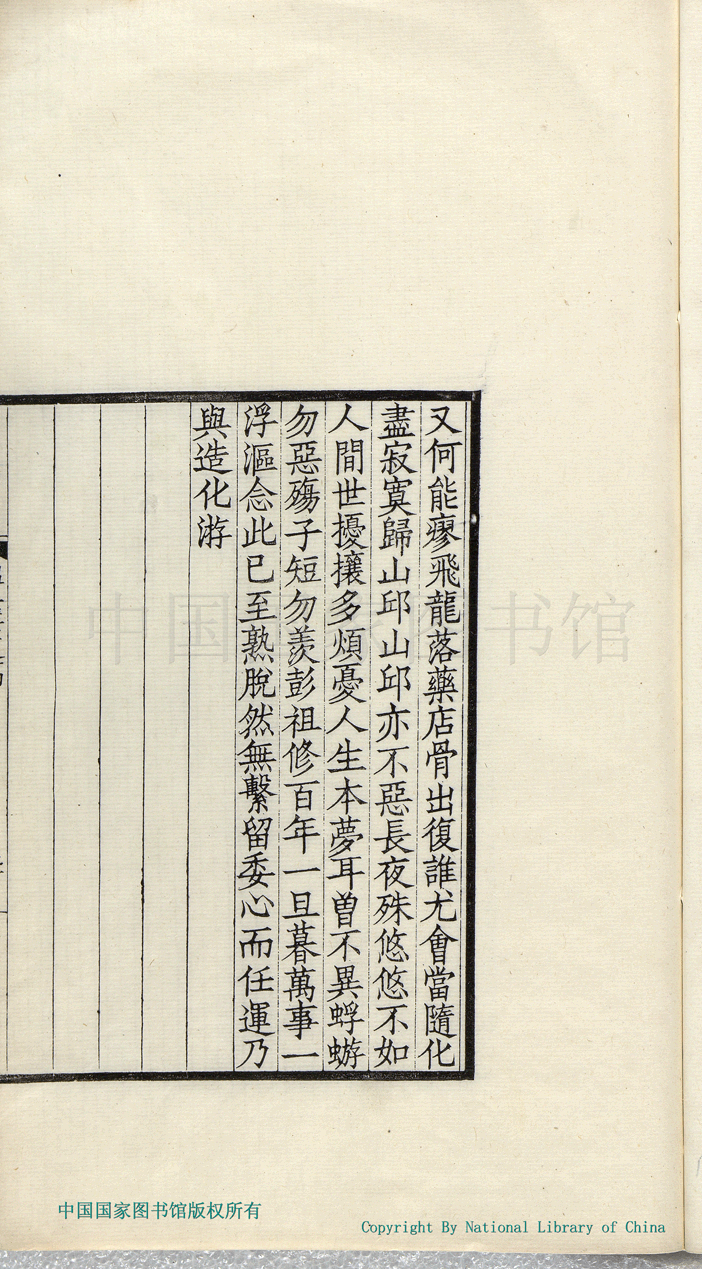 又何能瘳飛龍落藥店骨出復誰尤會當隨化
盡寂寞歸山邱山邱亦不惡長夜殊悠悠不如
人間世擾攘多煩憂人生本夢耳曾不異蜉蝣
勿惡殤子短勿羨彭祖修百年一旦暮萬事一
浮漚念此已至熟脫然無繫留委心而任運乃
與造化游
中国国家图书馆
中国国家图书馆版权所有
Copyright By National Library of China